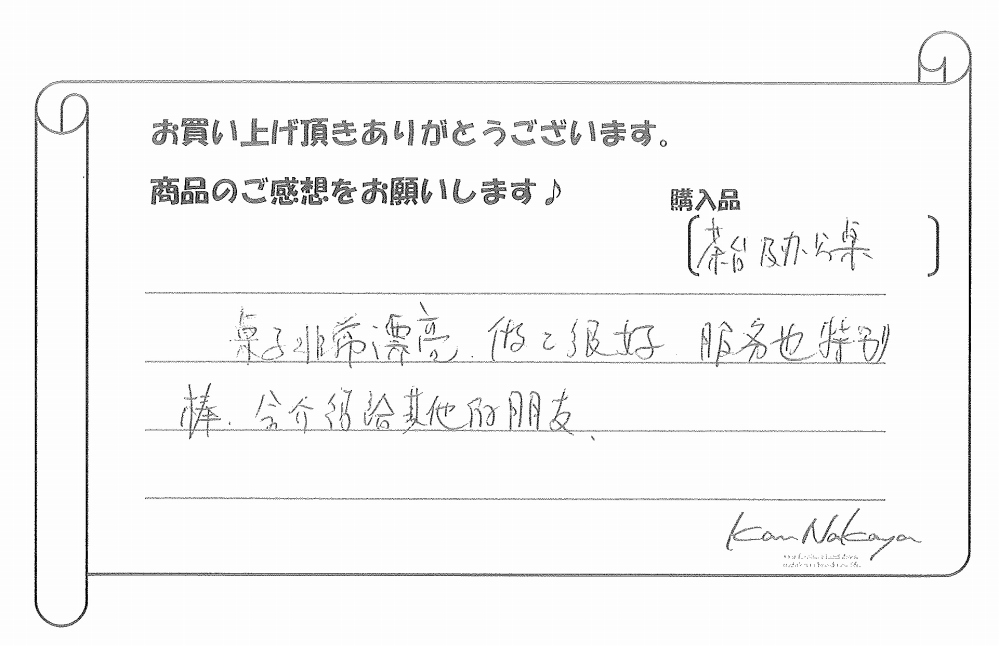 お買い上げ頂きありがとうございます。
商品のご感想をお願いします♪
購入品
[茶台及办公桌]
桌子非常漂亮.做工很好 服务也特别
棒.会介绍给其他的朋友、
Kan Nakaya